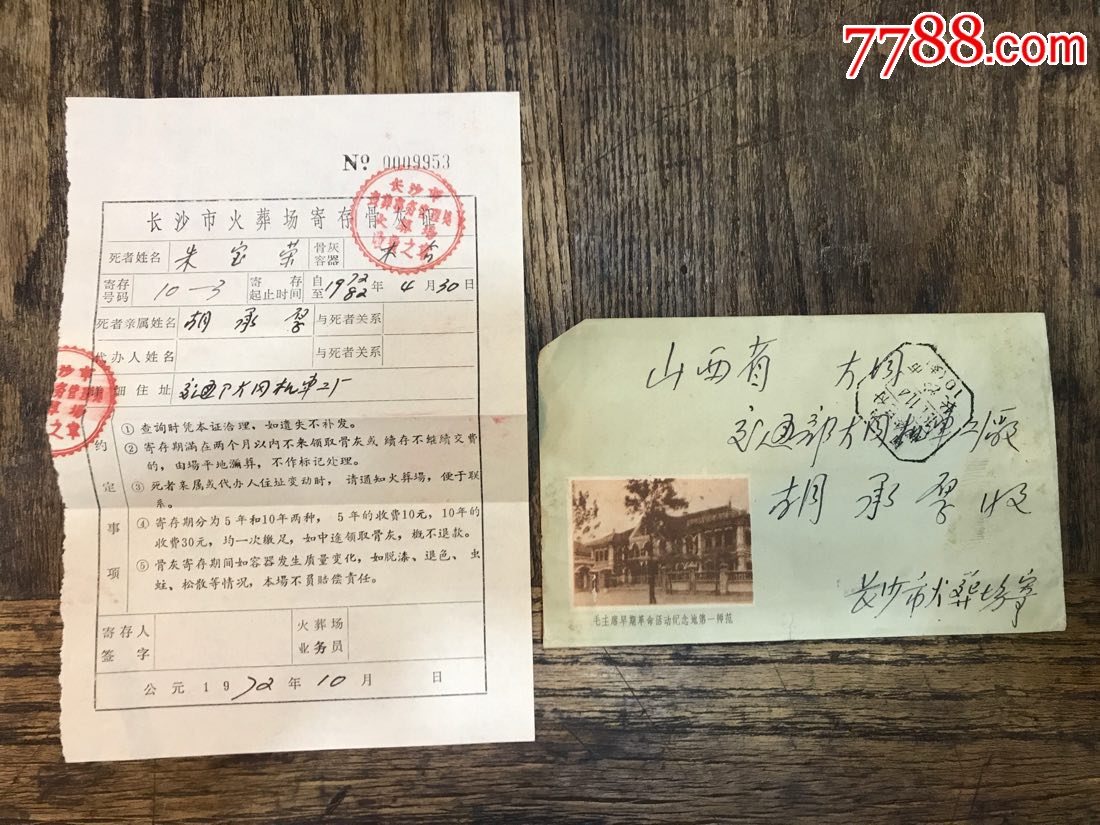 7788.com
Nº 0009953
长沙市火葬场寄存骨灰证
死者姓名 朱宝荣 骨灰容器 木合
寄存号码 10—3 寄存起止时间 自至1972 82年4月30日
死者亲属姓名 胡承 与死者关系
代办人姓名 与死者关系
详细住址 交通部大同机车工厂
约定事项
① 查詢时凭本证洽理，如遺失不补发。
② 寄存期滿在两个月以内不来領取骨灰或續存不継續交費
的，由場平地漏葬，不作标记处理。
③ 死者亲属或代办人住址变动时，请通知火葬場，便于联
系。
④ 寄存期分为5年和10年两种，5年的收費10元，10年的
收費30元，均一次缴足，如中途領取骨灰，概不退款。
⑤ 骨灰寄存期间如容器发生质量变化，如脱漆、退色、虫
蛀、松散等情况，本場不負賠偿責任。
寄存人签字 火葬场业务员
公元1972年10月 日
长沙市
火葬場
山西省 大同
交通部大同机車工廠
胡承 收
长沙市火葬场寄
毛主席早期革命活动纪念地第一师范